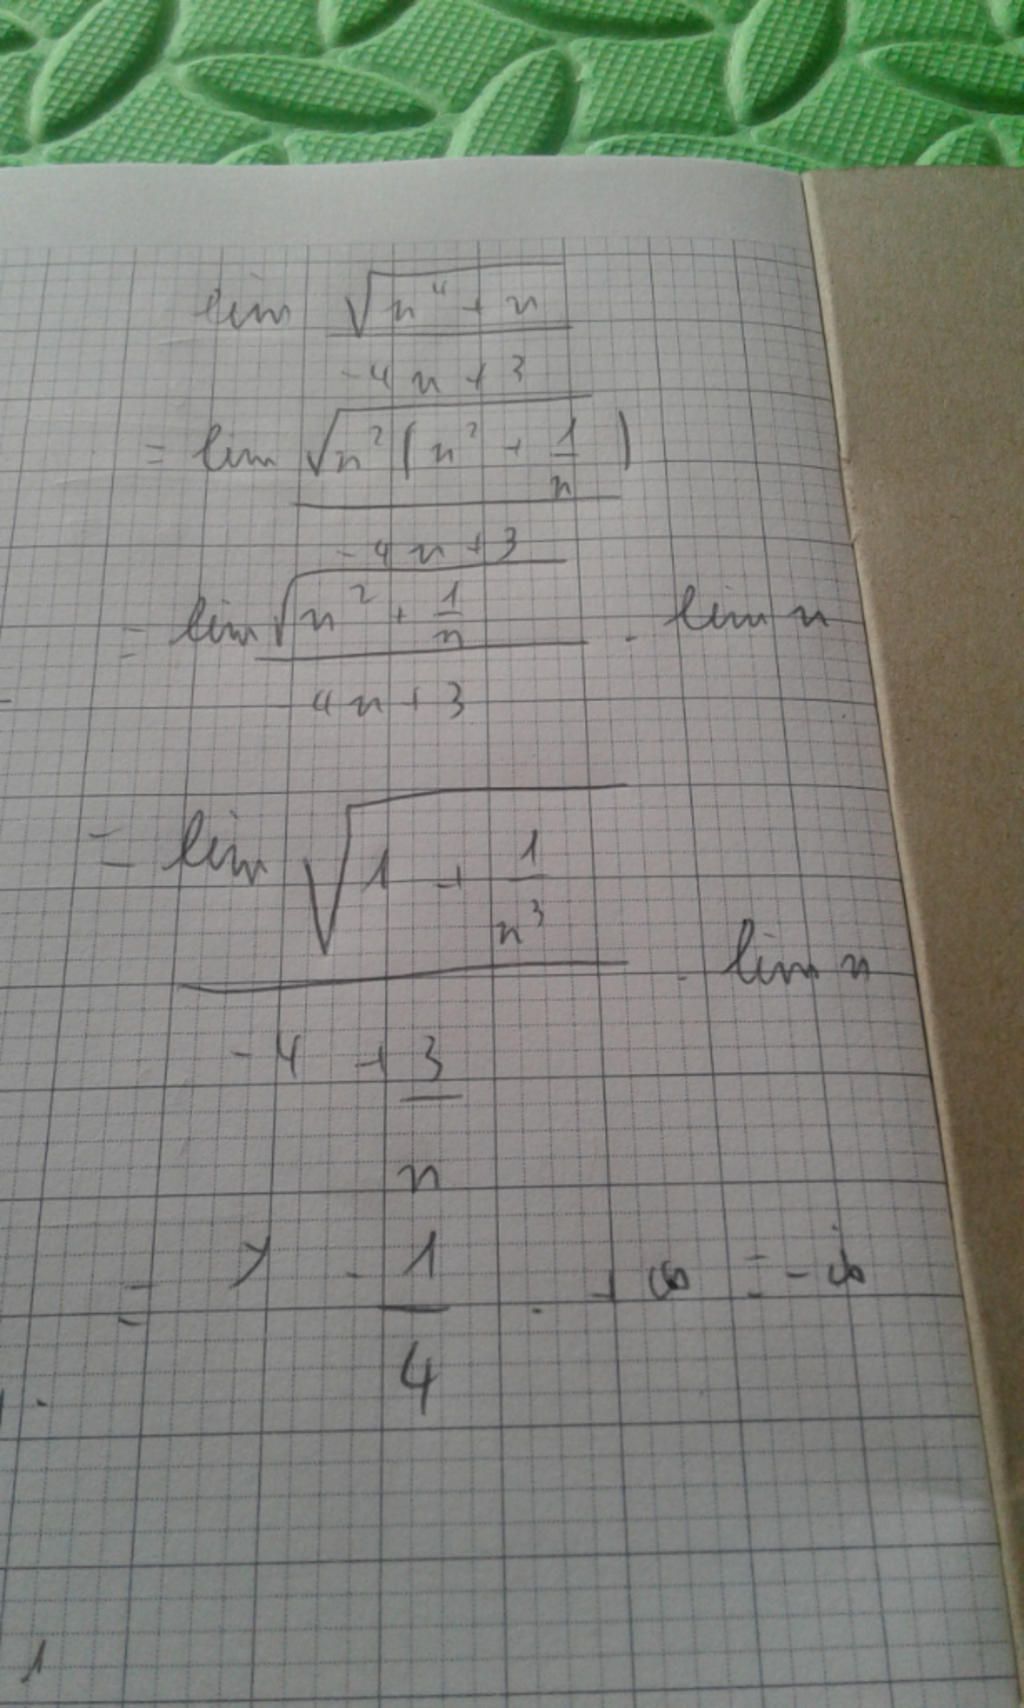 lim √(n⁴ + n) / (-4n + 3)
= lim √(n² (n² + 1/n)) / (-4n + 3)
= lim √(n² + 1/n) / (4n + 3) . lim n
= lim √(1 + 1/n³) / (-4 + 3/n) . lim n
= - 1/4 . + ∞ = -∞
1